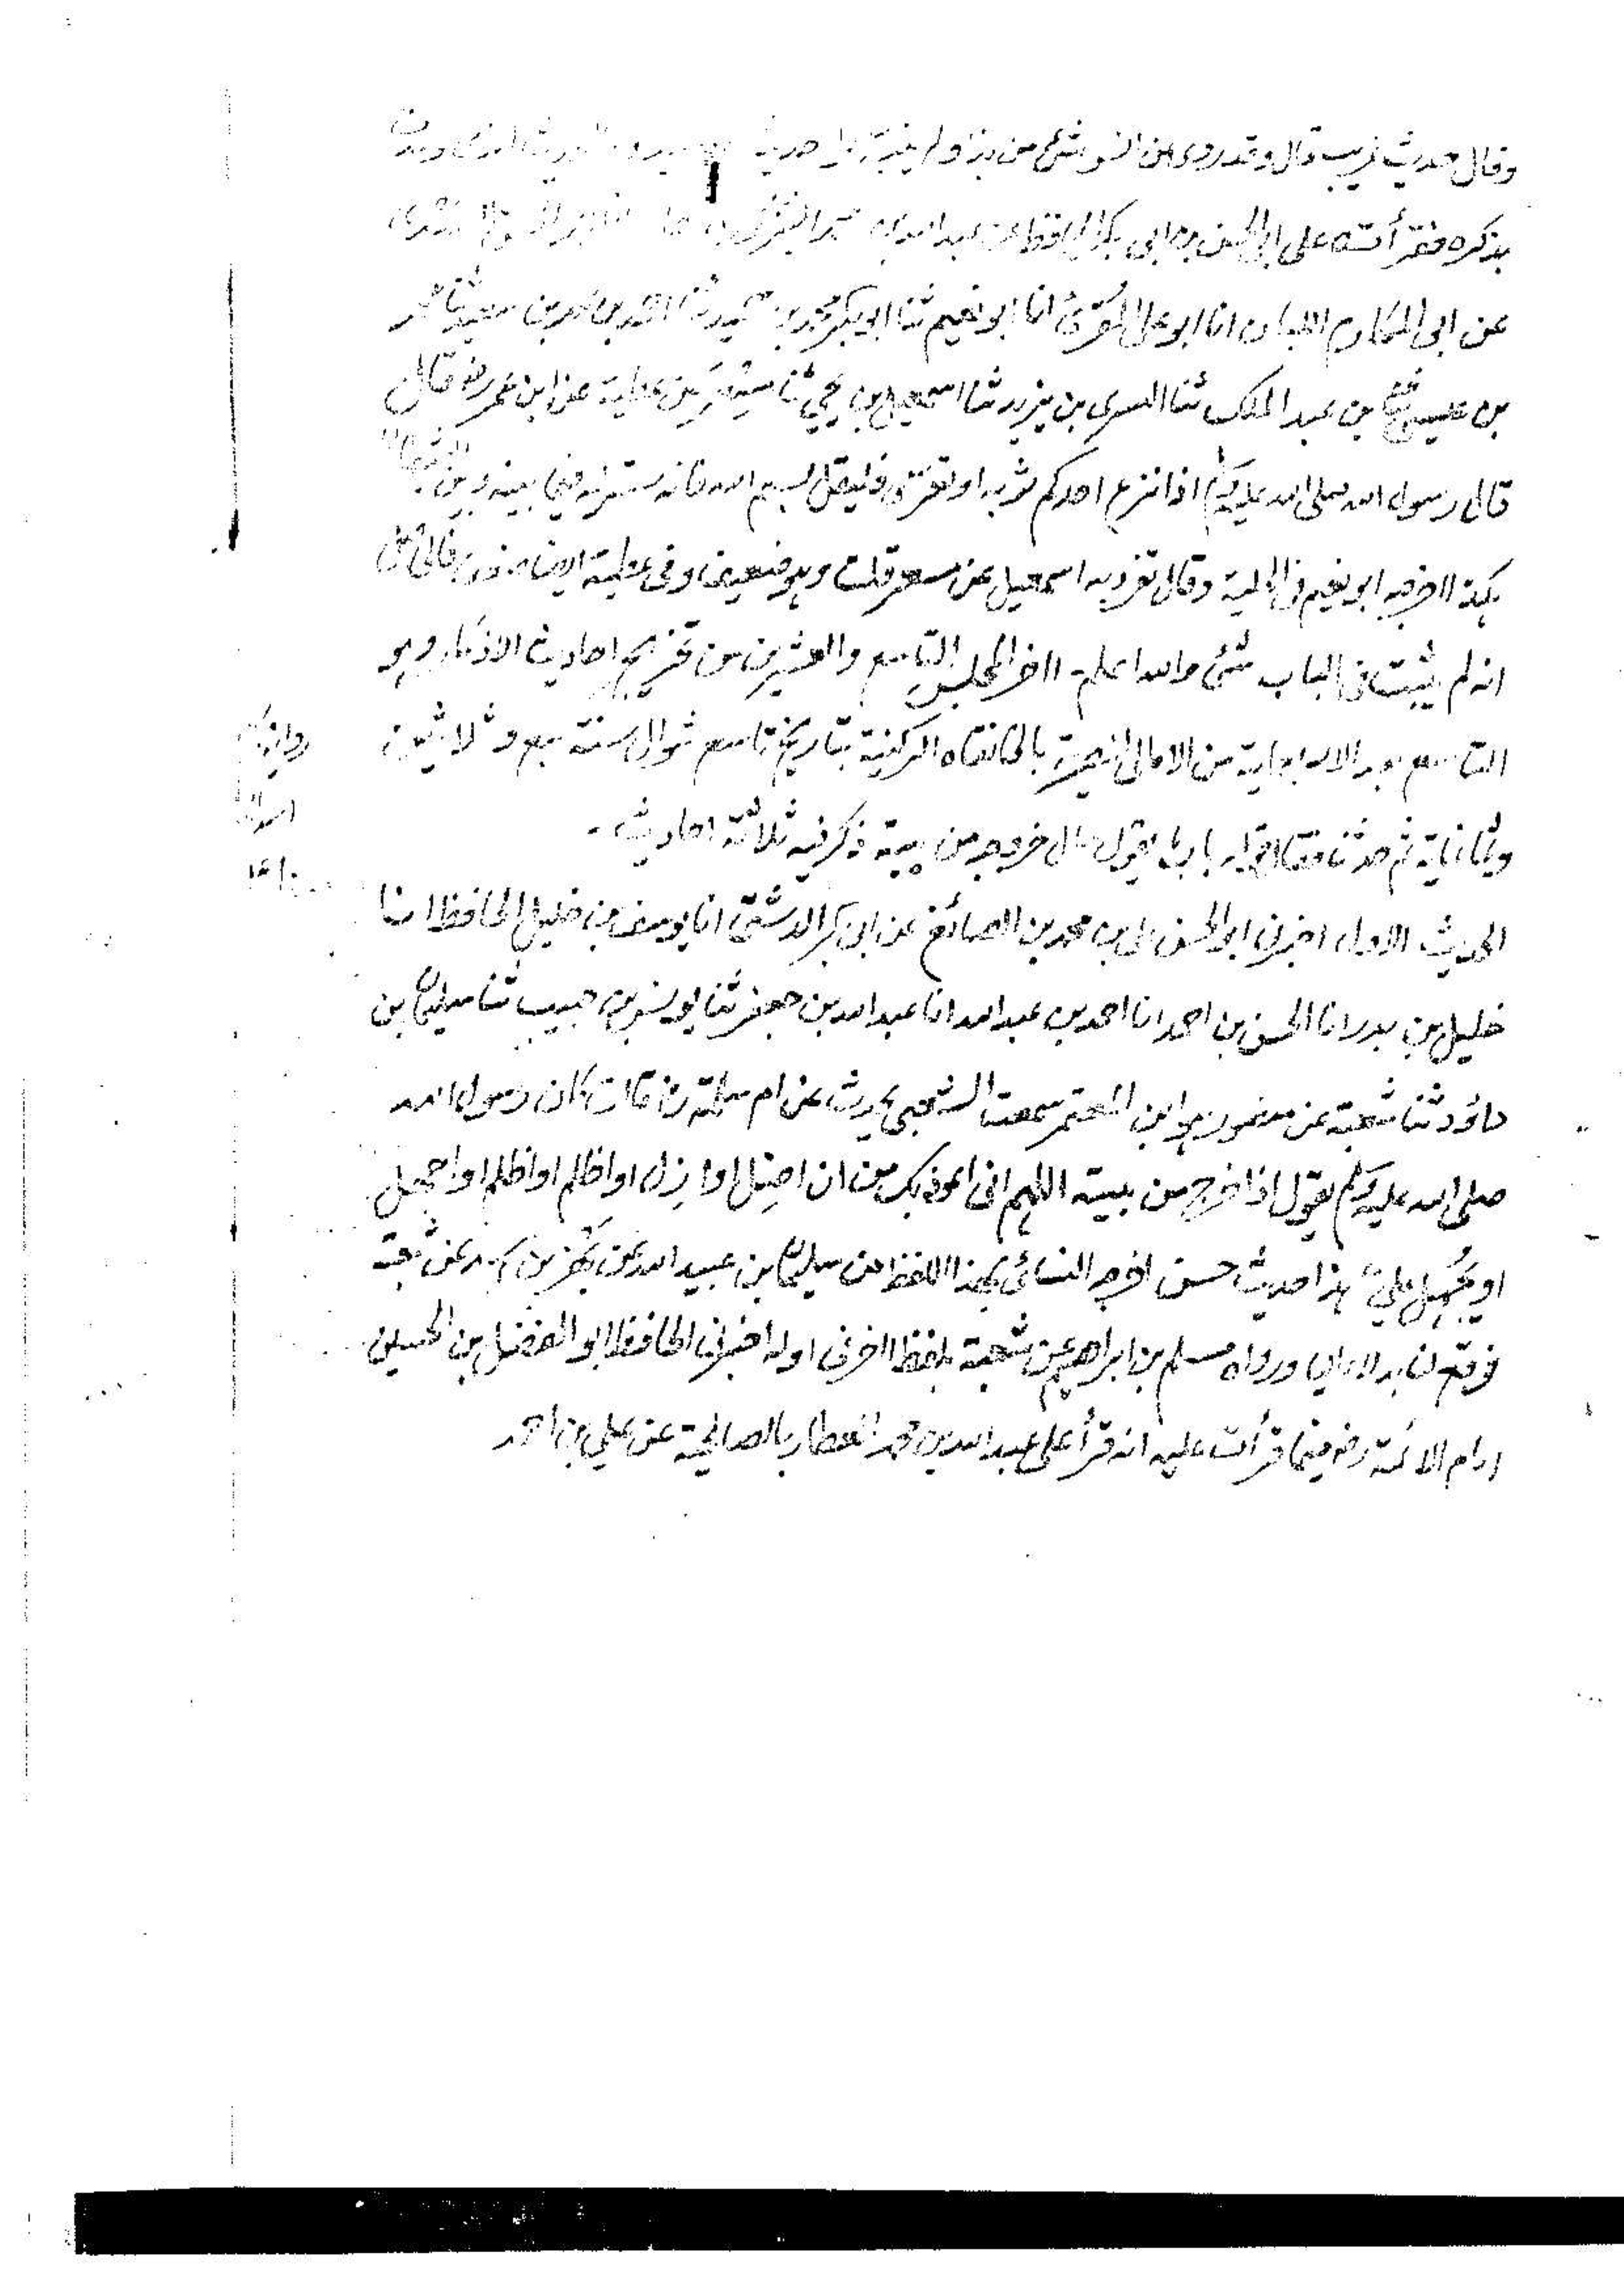 وقال حديث غريب قال وقد روى عن انس شئ من هذا ولم
بذكره فقرأته على ابى الحسن بن ابى بكر الحافظ عن عبد الله بن
عن ابى المكارم اللبان انا ابو على المقرئ انا ابو نعيم ثنا ابو بكر محمد بن حميد ثنا احمد بن محمد بن سعيد ثنا عمر
بن عيسى بن عبد الملك ثنا السرى بن يزيد ثنا اسمعيل بن يحيى ثنا مسعر عن عطية عن ابن عمر رض قال
قال رسول الله صلى الله عليه وسلم اذا نزع احدكم ثوبه او تعرى فليقل بسم الله فانه ستر له فيما بينه وبين الشيطان
هكذا اخرجه ابو نعيم فى الحلية وقال تفرد به اسمعيل عن مسعر قلت وهو ضعيف وفى عطية ايضا ضعف
انه لم يثبت فى الباب شئ والله اعلم - اخر المجلس التاسع والعشرين من تخريج احاديث الاذكار وهو
التاسع بعد الاربعماية من الامالى المصرية بالخانقاه الركنية بتاريخ تاسع شوال سنة سبع وثلاثين
وثمانماية ثم حدثنا فقال قوله باب ما يقول حال خروجه من بيته ذكر فيه ثلاثة احاديث -
الحديث الاول اخبرنى ابو الحسن على بن محمد بن الصائغ عن ابى بكر الدشتى انا يوسف بن خليل الحافظ انا
خليل بن بدر انا الحسن بن احمد انا احمد بن عبد الله انا عبد الله بن جعفر ثنا يونس بن حبيب ثنا سليمان بن
داؤد ثنا شعبة عن منصور هو ابن المعتمر سمعت الشعبى يحدث عن ام سلمة رض قالت كان رسول الله
صلى الله عليه وسلم يقول اذا خرج من بيته اللهم انى اعوذ بك من ان اضل او ازل او اظلم او اظلم او اجهل
او يجهل على هذا حديث حسن اخرجه النسائى بهذا اللفظ عن سليمان بن عبيد الله عن بهز بن اسد عن شعبة
فوقع لنا بدلا عاليا ورواه مسلم بن ابراهيم عن شعبة بلفظ اخر فى اوله اخبرنى الحافظ ابو الفضل بن الحسين
امام الائمة رض فيما قرأت عليه انه قرأ على عبد الله بن محمد العطار بالصالحية عن على بن احمد